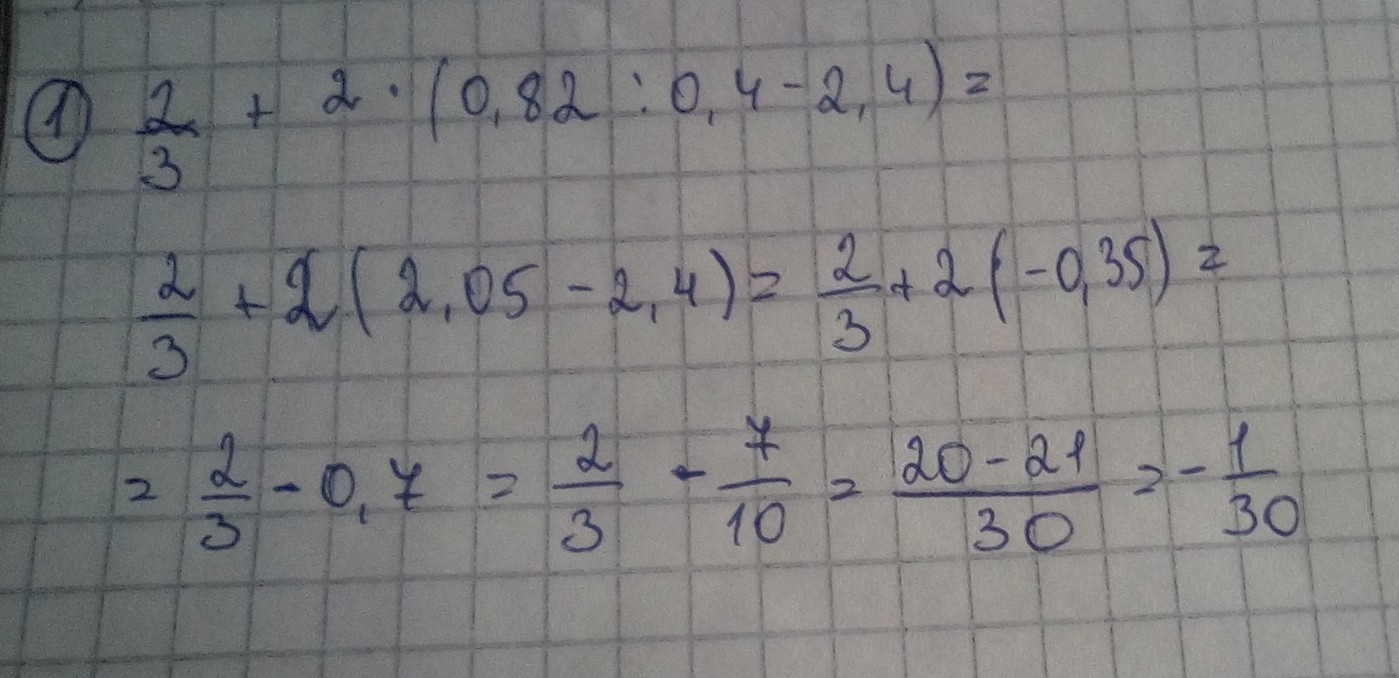 ① 2/3 + 2 · (0,82 : 0,4 - 2,4) =
2/3 + 2 (2,05 - 2,4) = 2/3 + 2 (-0,35) =
= 2/3 - 0,7 = 2/3 - 7/10 = (20 - 21)/30 = - 1/30